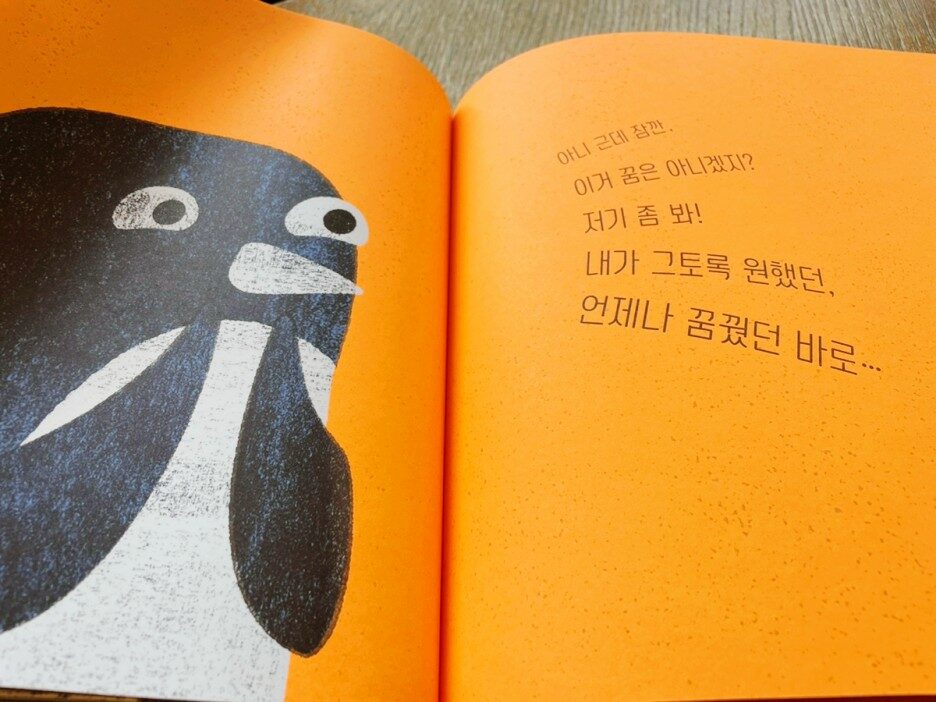 아니 근데 잠깐.
이거 꿈은 아니겠지?
저기 좀 봐!
내가 그토록 원했던,
언제나 꿈꿨던 바로…